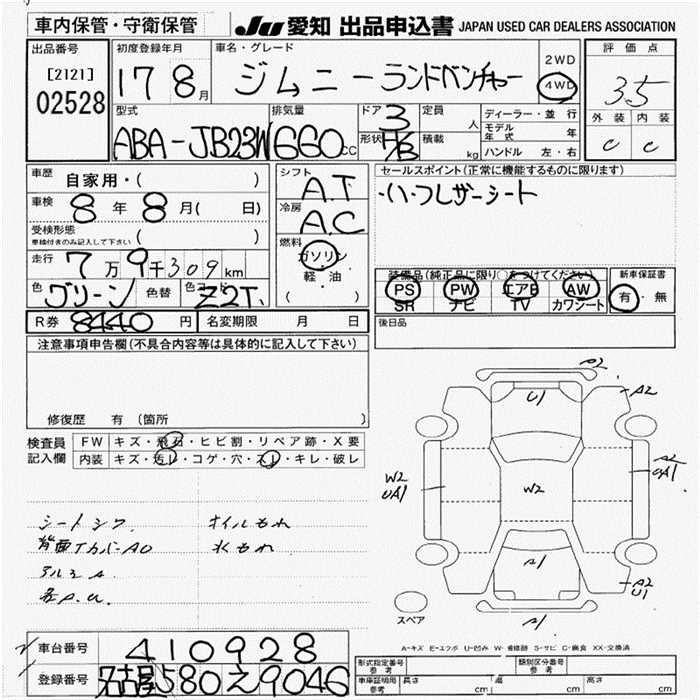 車内保管・守衛保管
JU 愛知 出品申込書 JAPAN USED CAR DEALERS ASSOCIATION
出品番号
[2121]
02528
初度登録年月
17 8月
車名・グレード
ジムニーランドベンチャー
2WD
4WD
評価点
3.5
外装 内装
C C
型式
ABA-JB23W
排気量
660cc
ドア 3
形状 H/B
定員 人
積載 kg
ディーラー・並行
モデル年式 年
ハンドル 左・右
車歴 自家用・( )
車検 8年8月( 日)
受検形態 ( )
車検付きのみ記入して下さい
走行 7万9千309km
色 グリーン 色替 色コード Z2T.
シフト A.T
冷房 A.C
燃料
ガソリン
軽・油
( )
セールスポイント(正常に機能するものに限ります)
・ハーフレザーシート
装備品(純正品に限り○をつけてください)
PS PW エアB AW
SR ナビ TV カワシート
新車保証書
有・無
R券 8440円 名変期限 月 日
後日品
注意事項申告欄(不具合内容等は具体的に記入して下さい)
修復歴 有(箇所 )
検査員記入欄
FW キズ・飛石・ヒビ割・リペア跡・X要
内装 キズ・汚レ・コゲ・穴・スレ・キレ・破レ
シートシワ オイルもれ
水もれ
アルミA
A2
U1
A2
W2
UA1
W2
A2
UA1
A1
A2
U1
A1
スペア
A-キズ E-エクボ U-凹み W-補修跡 S-サビ C-腐食 XX-交換済
車台番号 410928
登録番号 名古屋580え9046
形式指定番号 参考
類別区分番号 参考
車庫証明用 参考 長さ cm 幅 cm 高さ cm